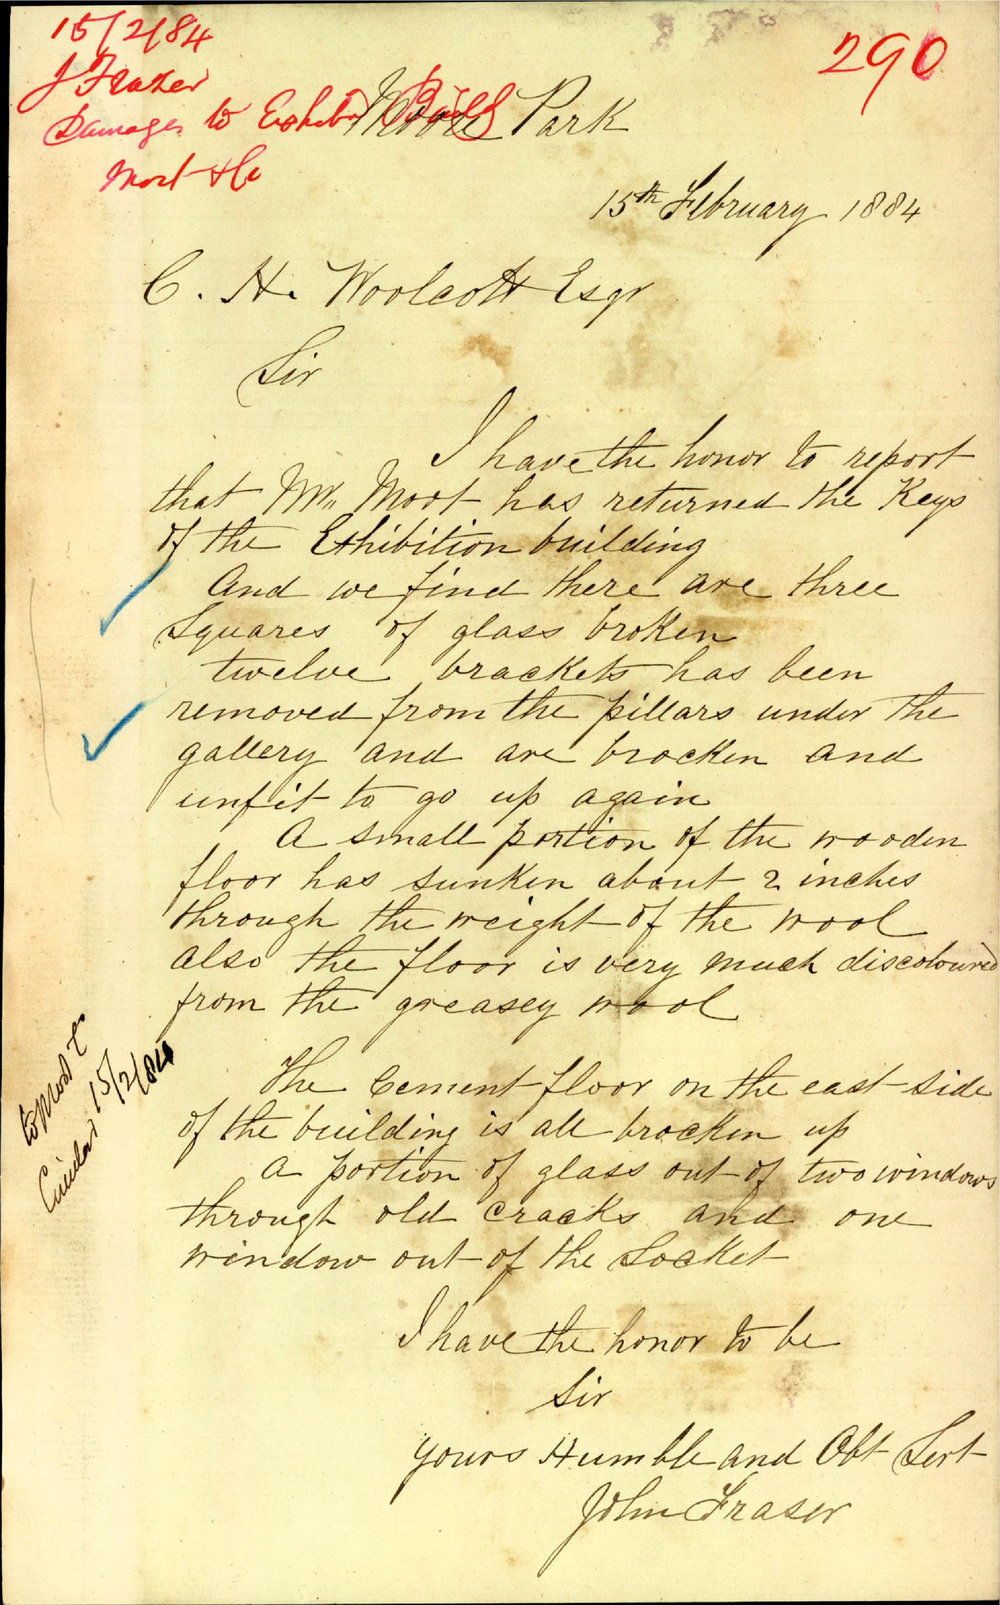 15/2/84
290
J Frazer
Damages to Exhibn Buildg
Mort & Co
Moore Park
15th February 1884
C. H. Woolcott Esqr
Sir
I have the honor to report
that Mr Mort has returned the Keys
of the Exhibition building
And we find there are three
Squares of glass broken
twelve brackets has been
removed from the pillars under the
gallery and are brocken and
unfit to go up again
A small portion of the wooden
floor has sunken about 2 inches
through the weight of the wool
also the floor is very much discoloured
from the greasey wool
The Cement floor on the east side
of the building is all brocken up
a portion of glass out of two windows
through old cracks and one
window out of the Socket
I have the honor to be
Sir
yours Humble and Obt Sert
John Fraser
to Mort & Co
Circular 15/2/84